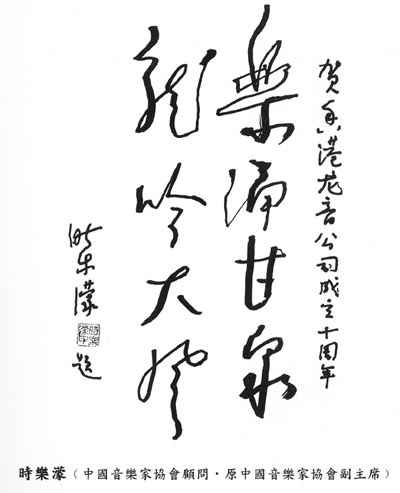 贺香港龙音公司成立十周年
樂涌甘泉
龍吟大风
时乐濛
题
時樂濛（中國音樂家協會顧問・原中國音樂家協會副主席）